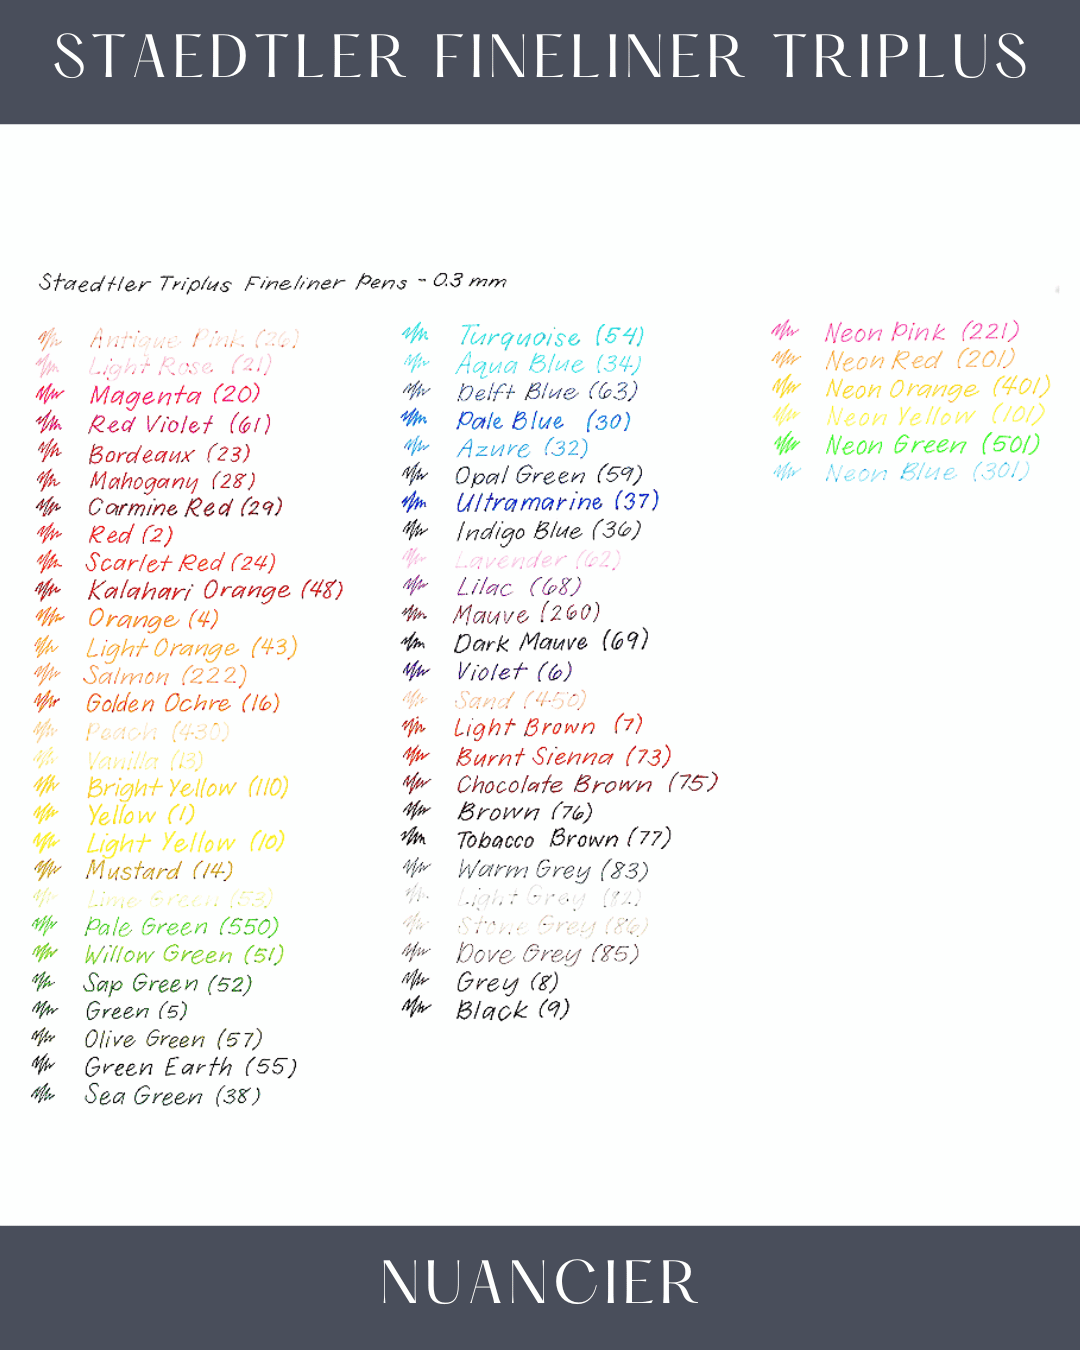 STAEDTLER FINELINER TRIPLUS
Staedtler Triplus Fineliner Pens - 0.3 mm
Antique Pink (26)
Light Rose (21)
Magenta (20)
Red Violet (61)
Bordeaux (23)
Mahogany (28)
Carmine Red (29)
Red (2)
Scarlet Red (24)
Kalahari Orange (48)
Orange (4)
Light Orange (43)
Salmon (222)
Golden Ochre (16)
Peach (430)
Vanilla (13)
Bright Yellow (110)
Yellow (1)
Light Yellow (10)
Mustard (14)
Lime Green (53)
Pale Green (550)
Willow Green (51)
Sap Green (52)
Green (5)
Olive Green (57)
Green Earth (55)
Sea Green (38)
Turquoise (54)
Aqua Blue (34)
Delft Blue (63)
Pale Blue (30)
Azure (32)
Opal Green (59)
Ultramarine (37)
Indigo Blue (36)
Lavender (62)
Lilac (68)
Mauve (260)
Dark Mauve (69)
Violet (6)
Sand (450)
Light Brown (7)
Burnt Sienna (73)
Chocolate Brown (75)
Brown (76)
Tobacco Brown (77)
Warm Grey (83)
Light Grey (82)
Stone Grey (86)
Dove Grey (85)
Grey (8)
Black (9)
Neon Pink (221)
Neon Red (201)
Neon Orange (401)
Neon Yellow (101)
Neon Green (501)
Neon Blue (301)
NUANCIER